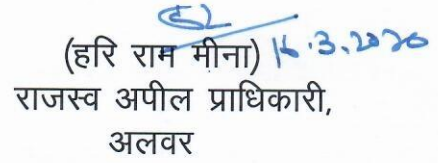 (हरि राम मीना) 16.3.2020
राजस्व अपील प्राधिकारी,
अलवर